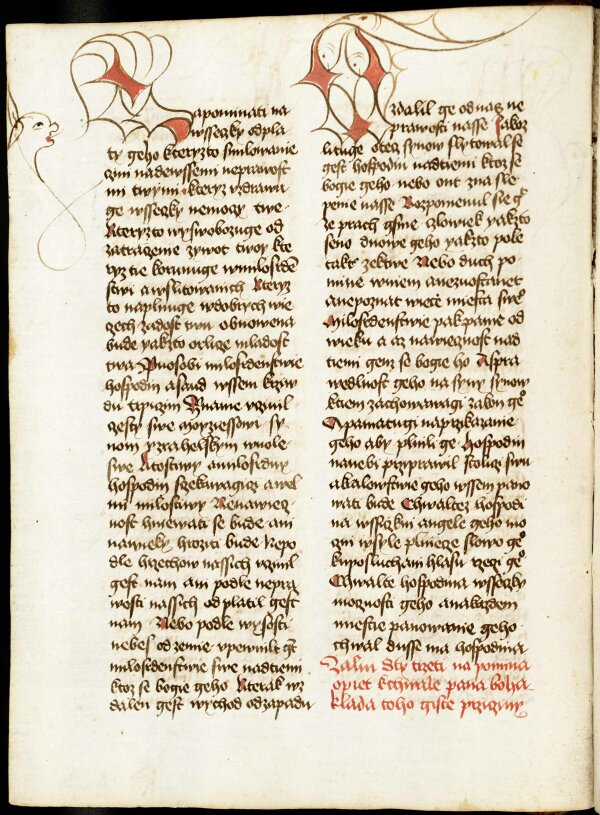 Zapominati na
wssecky odpla
ty geho kteryzto smilowanie
czini nadewssemi neprawost
mi twymi kteryz vzdrawu
ge wssecky nemoczy twe
Kteryzto wyswobozuge od
zatraczenie zywot twoy kte
ryz tie korunuge wmilosrden
stwi a wslitowanich Kteryz
to naplnuge wdobrych wie
czech zadost twu obnowena
bude yakzto orlicze mladost
twa Puosobi milosrdenstwie
hospodin a saud wssem krziw
du trpiczim Zname vczinil
czesty swe moyziessowi sy
nom yzrahelskym wuole
swe Litostiwy a milosrdny
hospodin sczekawagicz a wel
mi milostiwy Nenawiecz
nost hniewati se bude ani
nawieky hroziti bude Nepo
dle hrzechow nassich vczinil
gest nam ani podle nepra
wosti nassich odplatil gest
nam Nebo podle wysosti
nebes od zeme vpewnil gt
milosrdenstwie swe nadtiemi
ktoz se bogie geho Kterak wz
dalen gest wychod odzapadu
Wzdalil ge od nas ne
prawosti nasse Jakoz
lituge otecz synow slytowal se
gest hospodin nadtiemi ktoz se
bogie geho nebo ont zna sle
penie nasse Rozpomenul sie gt
ze prach gsme czlowiek yakzto
seno dnowe geho yakzto pole
takt zektwe Nebo duch po
mine wniem a nezuostanet
a nepoznat wiecze miesta sweo
Milosrdenstwie pak panie od
wieku a az nawiecznost nad
tiemi genz se bogie ho A spra
wedlnost geho na syny synow
ktiem zachowawagi zakon geo
A pamatugi na przikazanie
geho aby plnili ge Hospodin
na nebi przyprawil stolicz swu
a kralowstwie geho wssem pano
wati bude Chwaltez hospodi
na wssiczkni angele geho mo
czni wsyle plniecze slowo geo
ku posluchani hlasu rzeczi geo
Chwalte hospodina wssecky
moznosti geho a nakazdem
miestie panowanie geho
chwal dusse ma hospodina
Zalm dly trzeti napomina
opiet kchwale pana boha
klada toho giste prziczyny